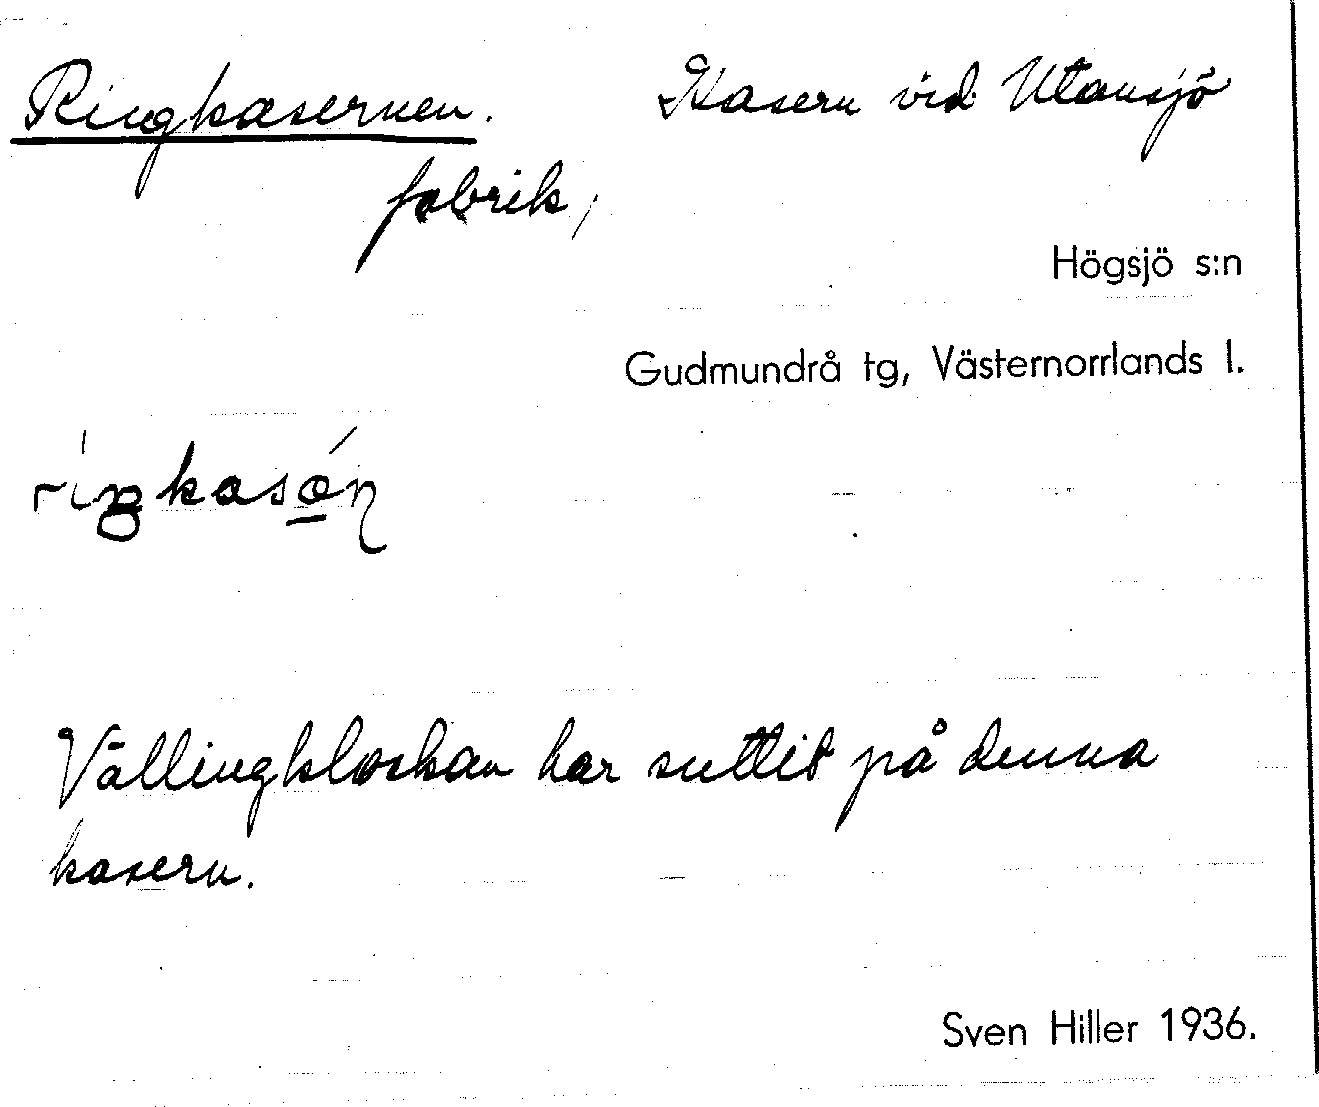 Ringkasernen. Kasern vid Utansjö
fabrik,
Högsjö s:n
Gudmundrå tg, Västernorrlands l.
Vällingklockan har suttit på denna
kasern.
Sven Hiller 1936.